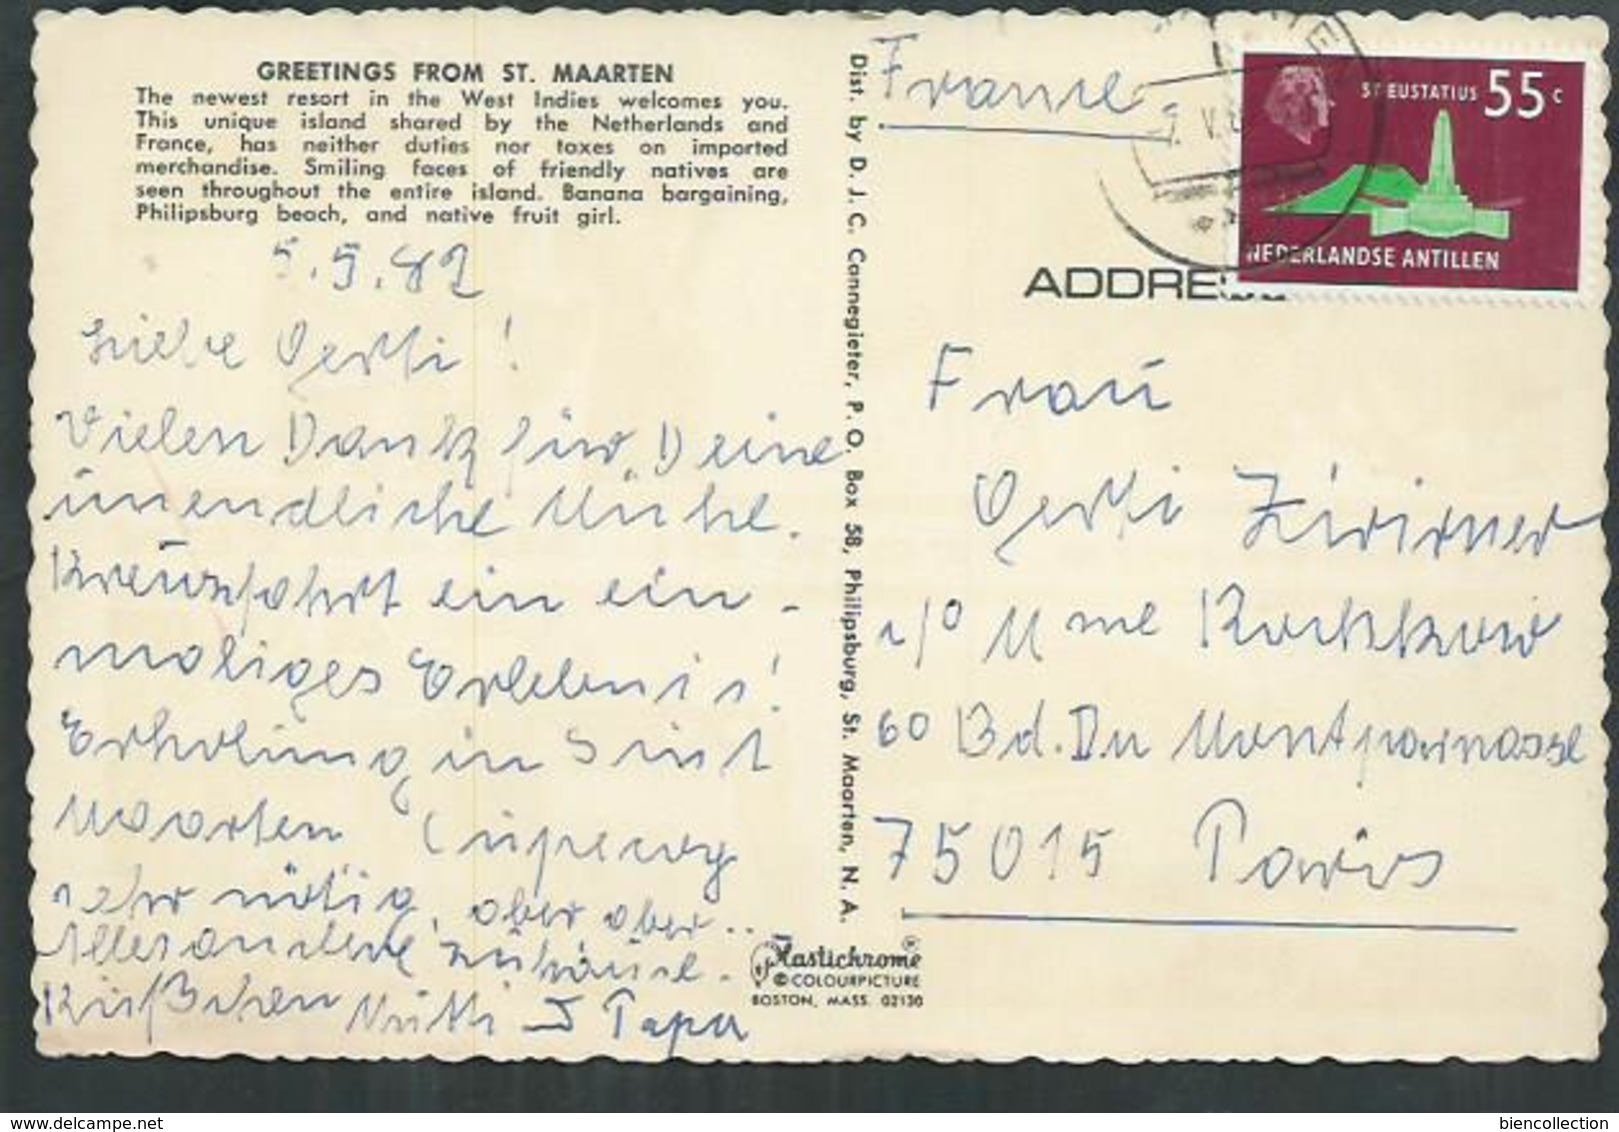 GREETINGS FROM ST. MAARTEN
The newest resort in the West Indies welcomes you.
This unique island shared by the Netherlands and
France, has neither duties nor taxes on imported
merchandise. Smiling faces of friendly natives are
seen throughout the entire island. Banana bargaining,
Philipsburg beach, and native fruit girl.
5.5.82
Liebe Oerti!
Vielen Dank für Deine
unendliche Mühe.
Kreuzfahrt ein ein-
maliges Erlebnis!
Erholung in Sint
Maarten
sehr nötig, aber aber...
Alles andere zuhause.
Küßchen Mutti & Papa
Dist. by D. J. C. Cannegieter, P. O. Box 58, Philipsburg, St. Maarten, N. A.
Plastichrome®
© COLOURPICTURE
BOSTON, MASS. 02130
France
ST EUSTATIUS 55 c
NEDERLANDSE ANTILLEN
ADDRESS
Frau
Oerti
c/o Mme
60 Bd. Du Montparnasse
75015 Paris
delcampe.net
biencollection